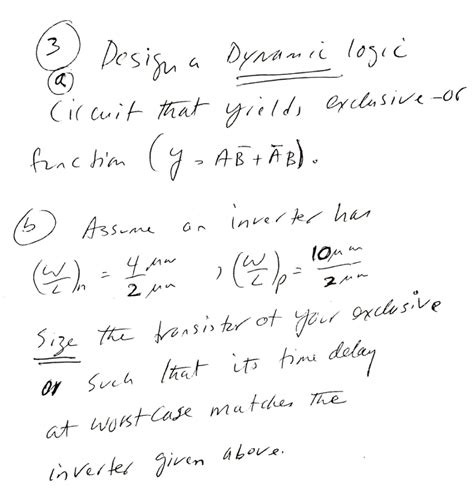 ③ Design a Dynamic logic
ⓐ
Circuit that yields exclusive-or
function (y = AB̅ + A̅B).
ⓑ Assume an inverter has
(W/L)n = 4 μm / 2 μm , (W/L)p = 10 μm / 2 μm
Size the transistor of your exclusive
or such that its time delay
at worst case matches the
inverter given above.